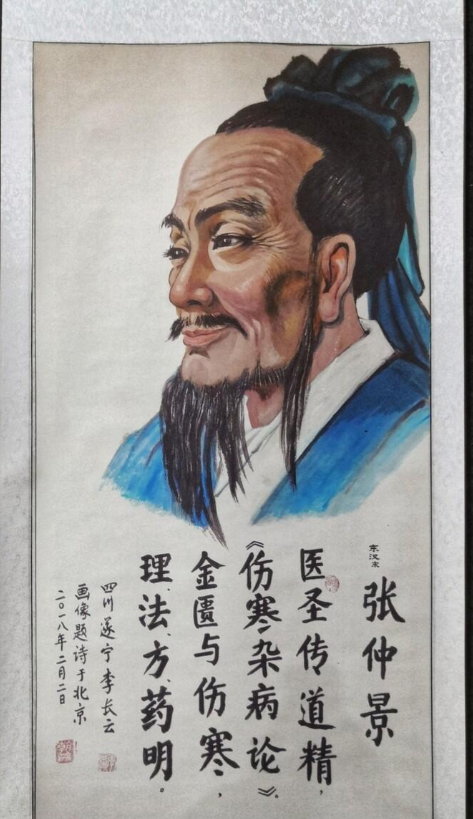 东汉末
张仲景
医圣传道精，
《伤寒杂病论》。
金匮与伤寒，
理、法、方、药明。
四川遂宁李长云
画像题诗于北京
二〇一八年二月二日